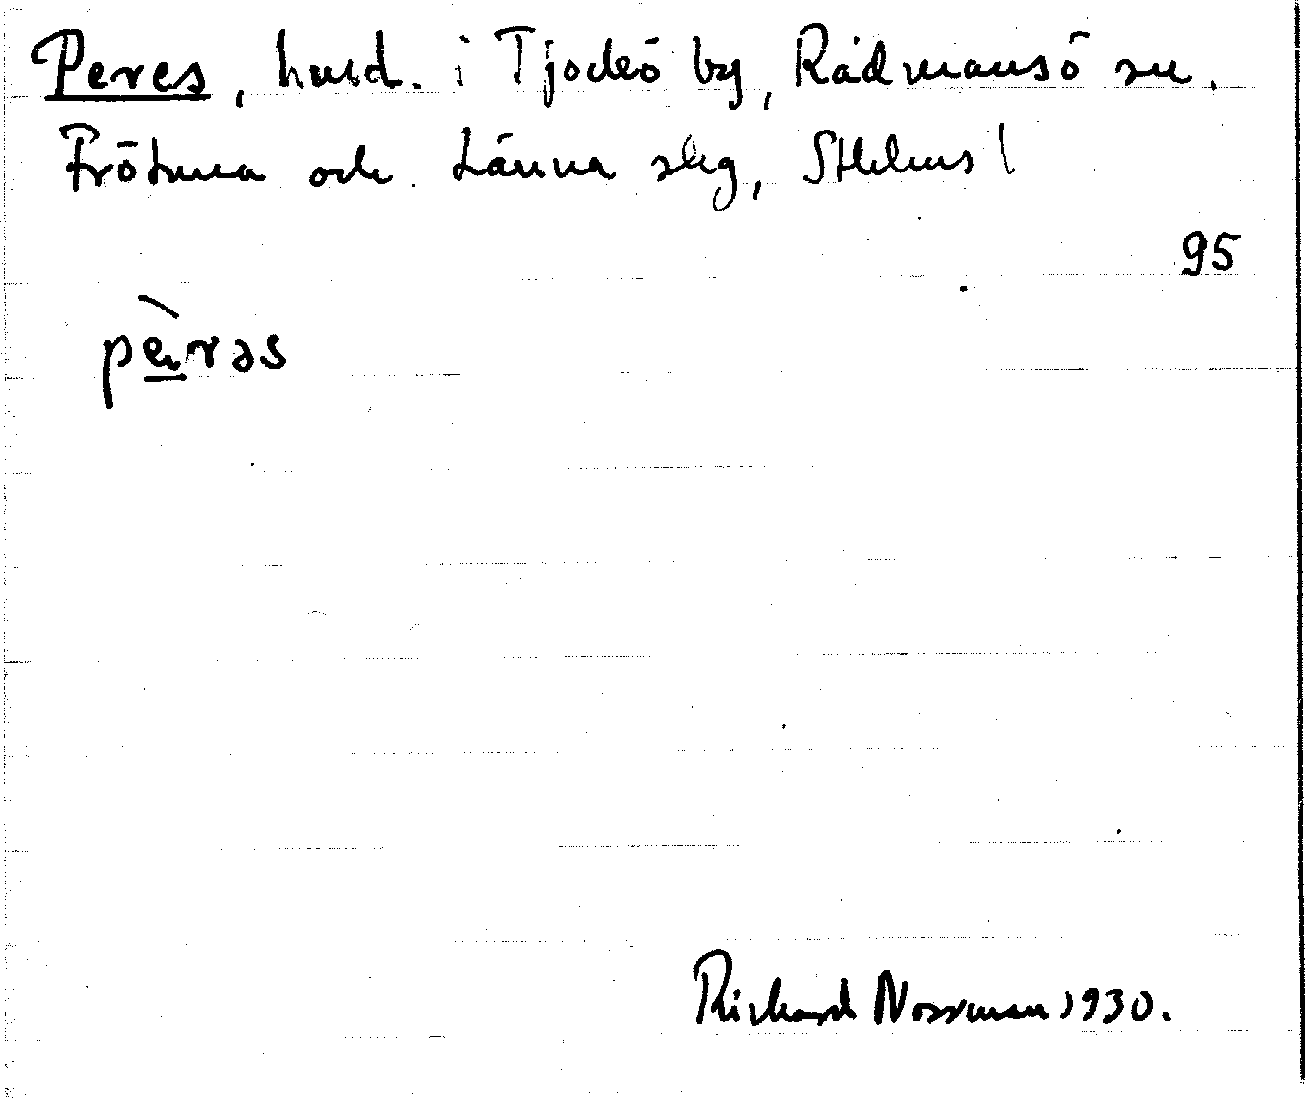 Peres, husd. i Tjockö by, Rådmansö sn.
Frötuna och Länna slg, Sthlms l
95
pèrəs
Rickard Norrman 1930.